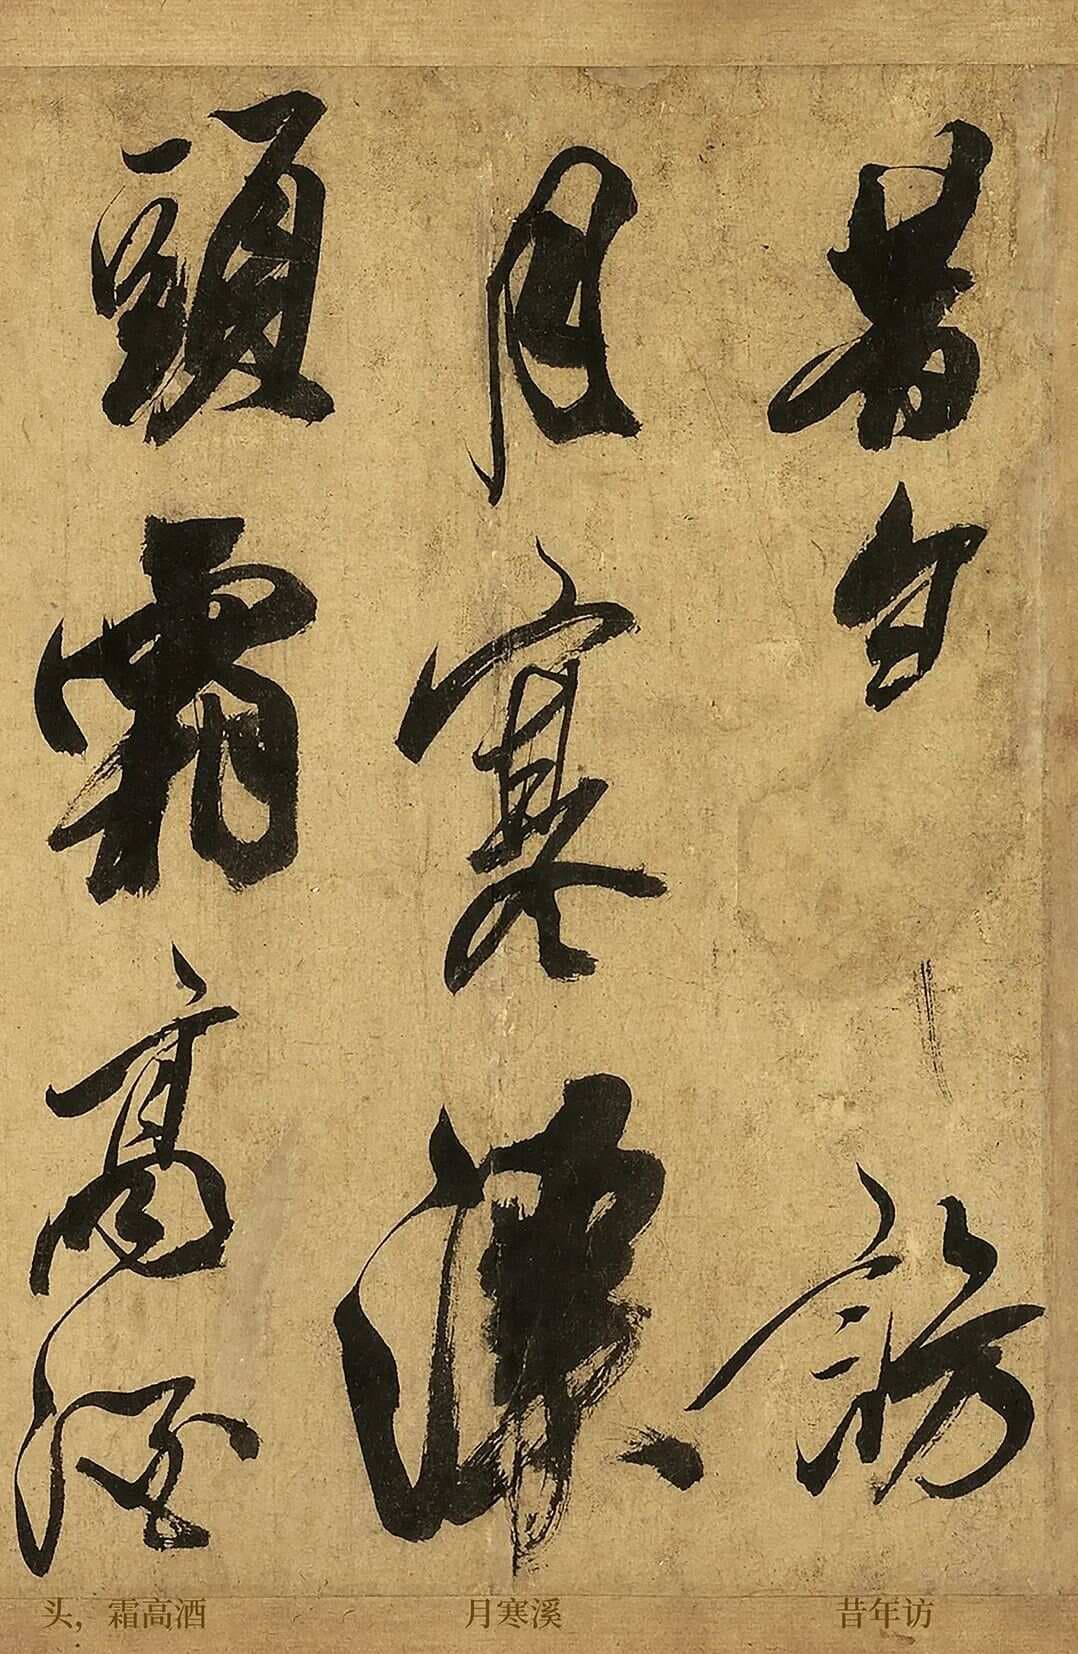 昔年訪
月寒溪
頭霜高酒
昔年访
月寒溪
头，霜高酒